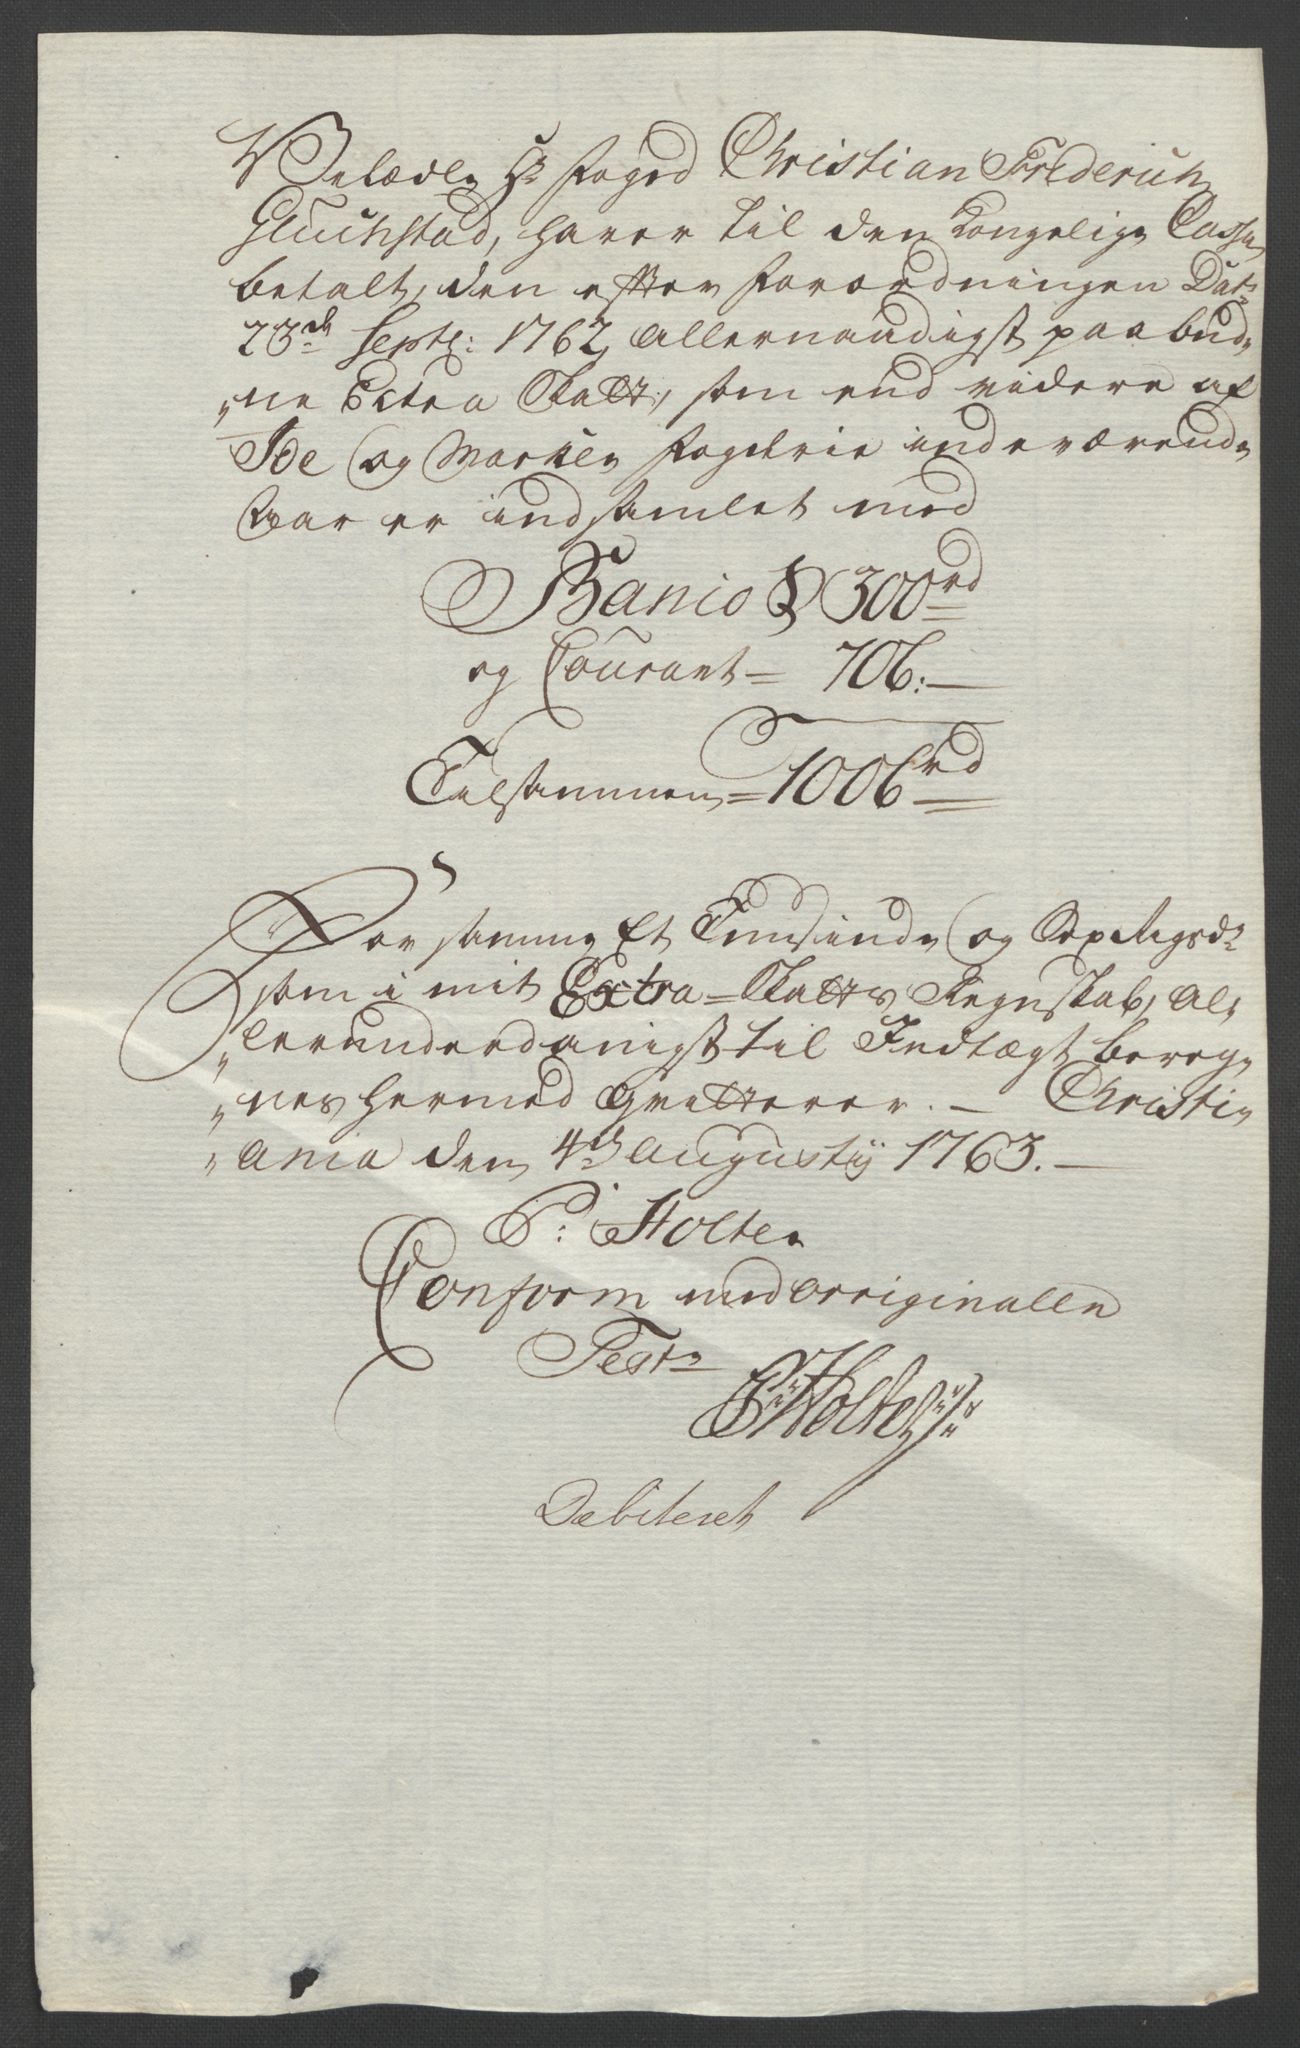 Velædle Hr Foged Christian Frederich
Gluchstad, haver til den Kongelige Cassa
betalt, den efter Forordningen Dat:
23de Septr: 1762 Allernaadigst paabud„
„ne Extra Skatt, som end videre af
Ide og Marker Fogderie indeværende
Aar er indsamlet med
Banco § 300rd
og Courant = 706:—
Tilsammen = 1006rd
For samme Et Tusinde og Sex Rigsdr
som i mit Extra=Skatts Regnskab, al„
„lerunderdanigst til Indtægt bereg„
„nes hermed Qvitterer. — Christi„
„ania den 4de Augustij 1763. —
P: Holter
Conform med Orriginallen
Test:
P: Holter
Debiteret